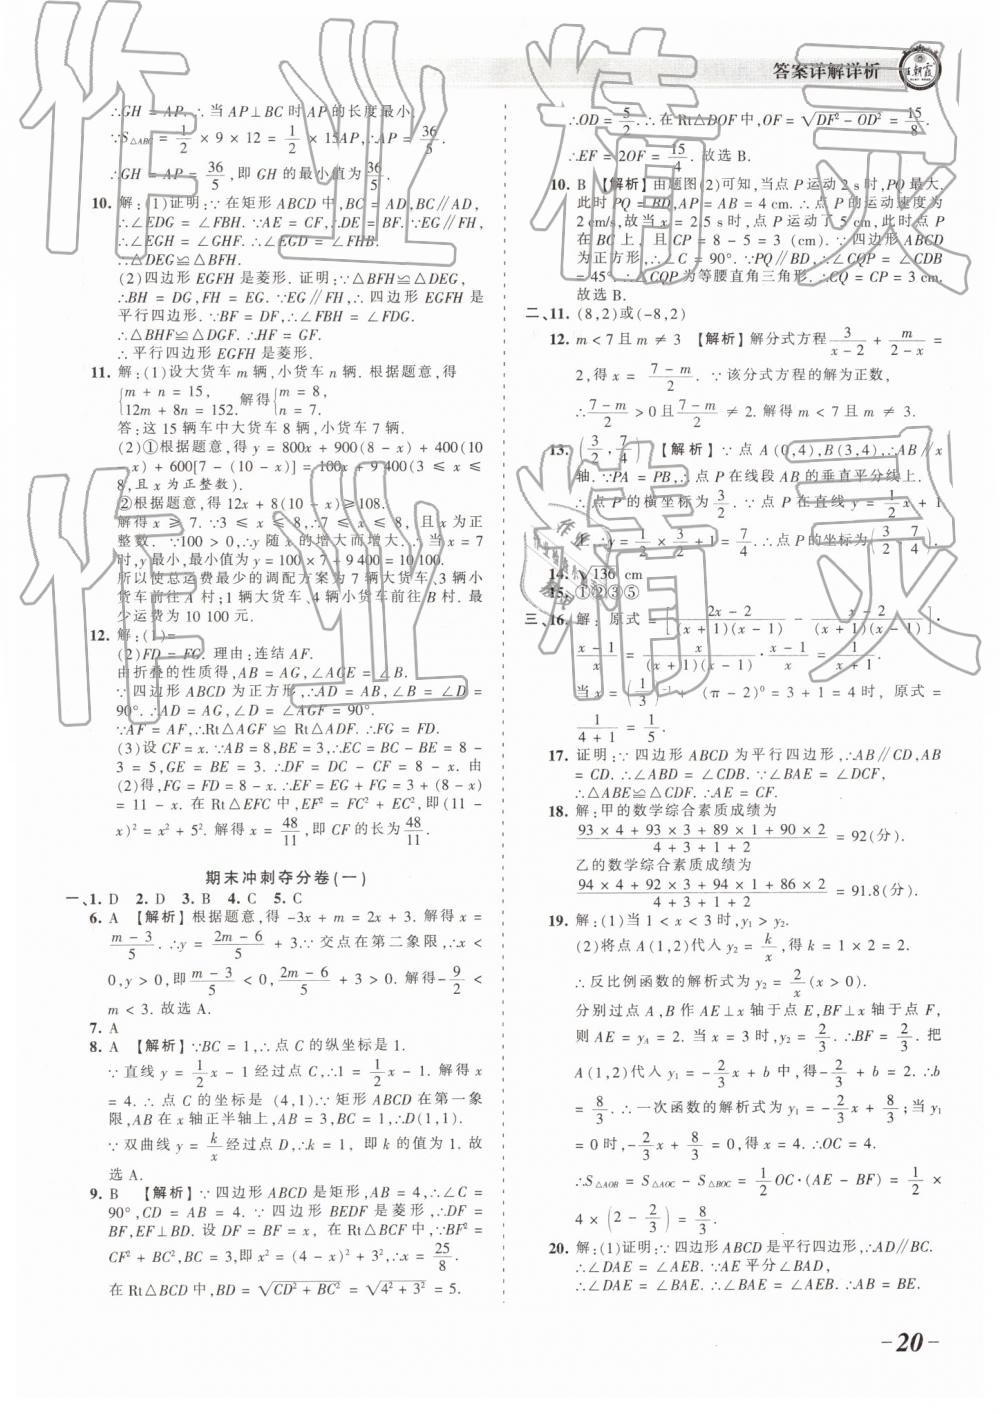 答案详解详析
∴GH = AP,∴当 AP⊥BC 时 AP 的长度最小.
∵S△ABC = 1/2 × 9 × 12 = 1/2 × 15AP,∴AP = 36/5.
∴GH = AP = 36/5,即 GH 的最小值为 36/5.
10. 解:(1)证明:∵在矩形 ABCD 中,BC = AD,BC∥AD,
∴∠EDG = ∠FBH. ∵AE = CF,∴DE = BF. ∵EG∥FH,
∴∠EGH = ∠GHF. ∴∠EGD = ∠FHB.
∴△DEG≌△BFH.
(2)四边形 EGFH 是菱形. 证明:∵△BFH≌△DEG,
∴BH = DG,FH = EG. ∵EG∥FH,∴四边形 EGFH 是
平行四边形. ∵BF = DF,∴∠FBH = ∠FDG.
∴△BHF≌△DGF. ∴HF = GF.
∴平行四边形 EGFH 是菱形.
11. 解:(1)设大货车 m 辆,小货车 n 辆. 根据题意,得
{m + n = 15, 12m + 8n = 152. 解得{m = 8, n = 7.
答:这 15 辆车中大货车 8 辆,小货车 7 辆.
(2)①根据题意,得 y = 800x + 900(8 - x) + 400(10
- x) + 600[7 - (10 - x)] = 100x + 9 400(3 ≤ x ≤
8,且 x 为正整数).
②根据题意,得 12x + 8(10 - x)≥108.
解得 x ≥ 7. ∵3 ≤ x ≤ 8,∴7 ≤ x ≤ 8, 且 x 为正
整数. ∵100 > 0,∴y 随 x 的增大而增大. ∴当 x = 7
时,y 最小,最小值为 y = 100 × 7 + 9 400 = 10 100.
所以使总运费最少的调配方案为 7 辆大货车、3 辆小
货车前往 A 村;1 辆大货车、4 辆小货车前往 B 村. 最
少运费为 10 100 元.
12. 解:(1)=
(2)FD = FG. 理由:连结 AF.
由折叠的性质得,AB = AG,∠AGE = ∠B.
∵四边形 ABCD 为正方形,∴AD = AB,∠B = ∠D =
90°. ∴AD = AG,∠D = ∠AGF = 90°.
∵AF = AF,∴Rt△AGF ≌ Rt△ADF. ∴FG = FD.
(3)设 CF = x. ∵AB = 8,BE = 3,∴EC = BC - BE = 8 -
3 = 5,GE = BE = 3. ∴DF = DC - CF = 8 - x. 由
(2)得,FG = FD = 8 - x. ∴EF = EG + FG = 3 + (8 - x)
= 11 - x. 在 Rt△EFC 中,EF² = FC² + EC²,即(11 -
x)² = x² + 5². 解得 x = 48/11,即 CF 的长为 48/11.
期末冲刺夺分卷(一)
一、1. D 2. D 3. B 4. C 5. C
6. A 【解析】根据题意,得 -3x + m = 2x + 3. 解得 x =
(m - 3)/5. ∴y = (2m - 6)/5 + 3. ∵交点在第二象限,∴x <
0,y > 0,即 (m - 3)/5 < 0,(2m - 6)/5 + 3 > 0. 解得 -9/2 <
m < 3. 故选 A.
7. A
8. A 【解析】∵BC = 1,∴点 C 的纵坐标是 1.
∵直线 y = 1/2x - 1 经过点 C,∴1 = 1/2x - 1. 解得 x
= 4. ∴点 C 的坐标是 (4,1). ∵矩形 ABCD 在第一象
限,AB 在 x 轴正半轴上,AB = 3,BC = 1,∴D(1,1).
∵双曲线 y = k/x 经过点 D,∴k = 1, 即 k 的值为 1. 故
选 A.
9. B 【解析】∵四边形 ABCD 是矩形,AB = 4,∴∠C =
90°,CD = AB = 4. ∵四边形 BEDF 是菱形,∴DF =
BF,EF⊥BD. 设 DF = BF = x, 在 Rt△BCF 中,∵BF² =
CF² + BC²,BC = 3,即 x² = (4 - x)² + 3²,∴x = 25/8.
在 Rt△BCD 中,BD = √(CD² + BC²) = √(4² + 3²) = 5.
∴OD = 5/2. ∴在 Rt△DOF 中,OF = √(DF² - OD²) = 15/8.
∴EF = 2OF = 15/4. 故选 B.
10. B 【解析】由题图(2)可知,当点 P 运动 2 s 时,PQ 最大,
此时 PQ = BD,AP = AB = 4 cm. ∴点 P 的运动速度为
2 cm/s,故当 x = 2.5 s 时,点 P 运动了 5 cm,此时点 P
在 BC 上, 且 CP = 8 - 5 = 3 (cm). ∵四边形 ABCD
为正方形,∴∠C = 90°. ∵PQ∥BD,∴∠CQP = ∠CDB
= 45°. ∴△CQP 为等腰直角三角形. ∴CQ = CP = 3 cm.
故选 B.
二、11. (8,2)或(-8,2)
12. m < 7 且 m ≠ 3 【解析】解分式方程 3/(x - 2) + m/(2 - x) =
2,得 x = (7 - m)/2. ∵该分式方程的解为正数,
∴(7 - m)/2 > 0 且 (7 - m)/2 ≠ 2. 解得 m < 7 且 m ≠ 3.
13. (3/2, 7/4) 【解析】∵点 A(0,4),B(3,4),∴AB∥x
轴. ∵PA = PB,∴点 P 在线段 AB 的垂直平分线上.
∴点 P 的横坐标为 3/2. ∵点 P 在直线 y = 1/2x + 1
上,∴y = 1/2 × 3/2 + 1 = 7/4. ∴点 P 的坐标为(3/2, 7/4).
14. √136 cm
15. ①②③⑤
三、16. 解: 原式 = [(2x - 2)/((x + 1)(x - 1)) - (x - 2)/((x + 1)(x - 1))]·
(x - 1)/x = x/((x + 1)(x - 1)) · (x - 1)/x = 1/(x + 1).
当 x = (1/3)⁻¹ + (π - 2)⁰ = 3 + 1 = 4 时, 原式 =
1/(4 + 1) = 1/5.
17. 证明:∵四边形 ABCD 为平行四边形,∴AB∥CD,AB
= CD. ∴∠ABD = ∠CDB. ∵∠BAE = ∠DCF,
∴△ABE≌△CDF. ∴AE = CF.
18. 解:甲的数学综合素质成绩为
(93 × 4 + 93 × 3 + 89 × 1 + 90 × 2)/(4 + 3 + 1 + 2) = 92(分).
乙的数学综合素质成绩为
(94 × 4 + 92 × 3 + 94 × 1 + 86 × 2)/(4 + 3 + 1 + 2) = 91.8(分).
19. 解:(1)当 1 < x < 3 时,y₁ > y₂.
(2)将点 A(1,2)代入 y₂ = k/x,得 k = 1 × 2 = 2.
∴反比例函数的解析式为 y₂ = 2/x (x > 0).
分别过点 A,B 作 AE⊥x 轴于点 E,BF⊥x 轴于点 F,
则 AE = yA = 2. 当 x = 3 时,y₂ = 2/3. ∴BF = 2/3. 把
A(1,2)代入 y₁ = -2/3x + b 中,得 -2/3 + b = 2. ∴b
= 8/3. ∴一次函数的解析式为 y₁ = -2/3x + 8/3;当 y₁
= 0 时,-2/3x + 8/3 = 0,得 x = 4. ∴OC = 4.
∴S△AOB = S△AOC - S△BOC = 1/2 OC·(AE - BF) = 1/2 ×
4 × (2 - 2/3) = 8/3.
20. 解:(1)证明:∵四边形 ABCD 是平行四边形,∴AD∥BC.
∴∠DAE = ∠AEB. ∵AE 平分∠BAD,
∴∠DAE = ∠BAE. ∴∠BAE = ∠AEB. ∴AB = BE.
- 20 -
作业精灵
作业精灵